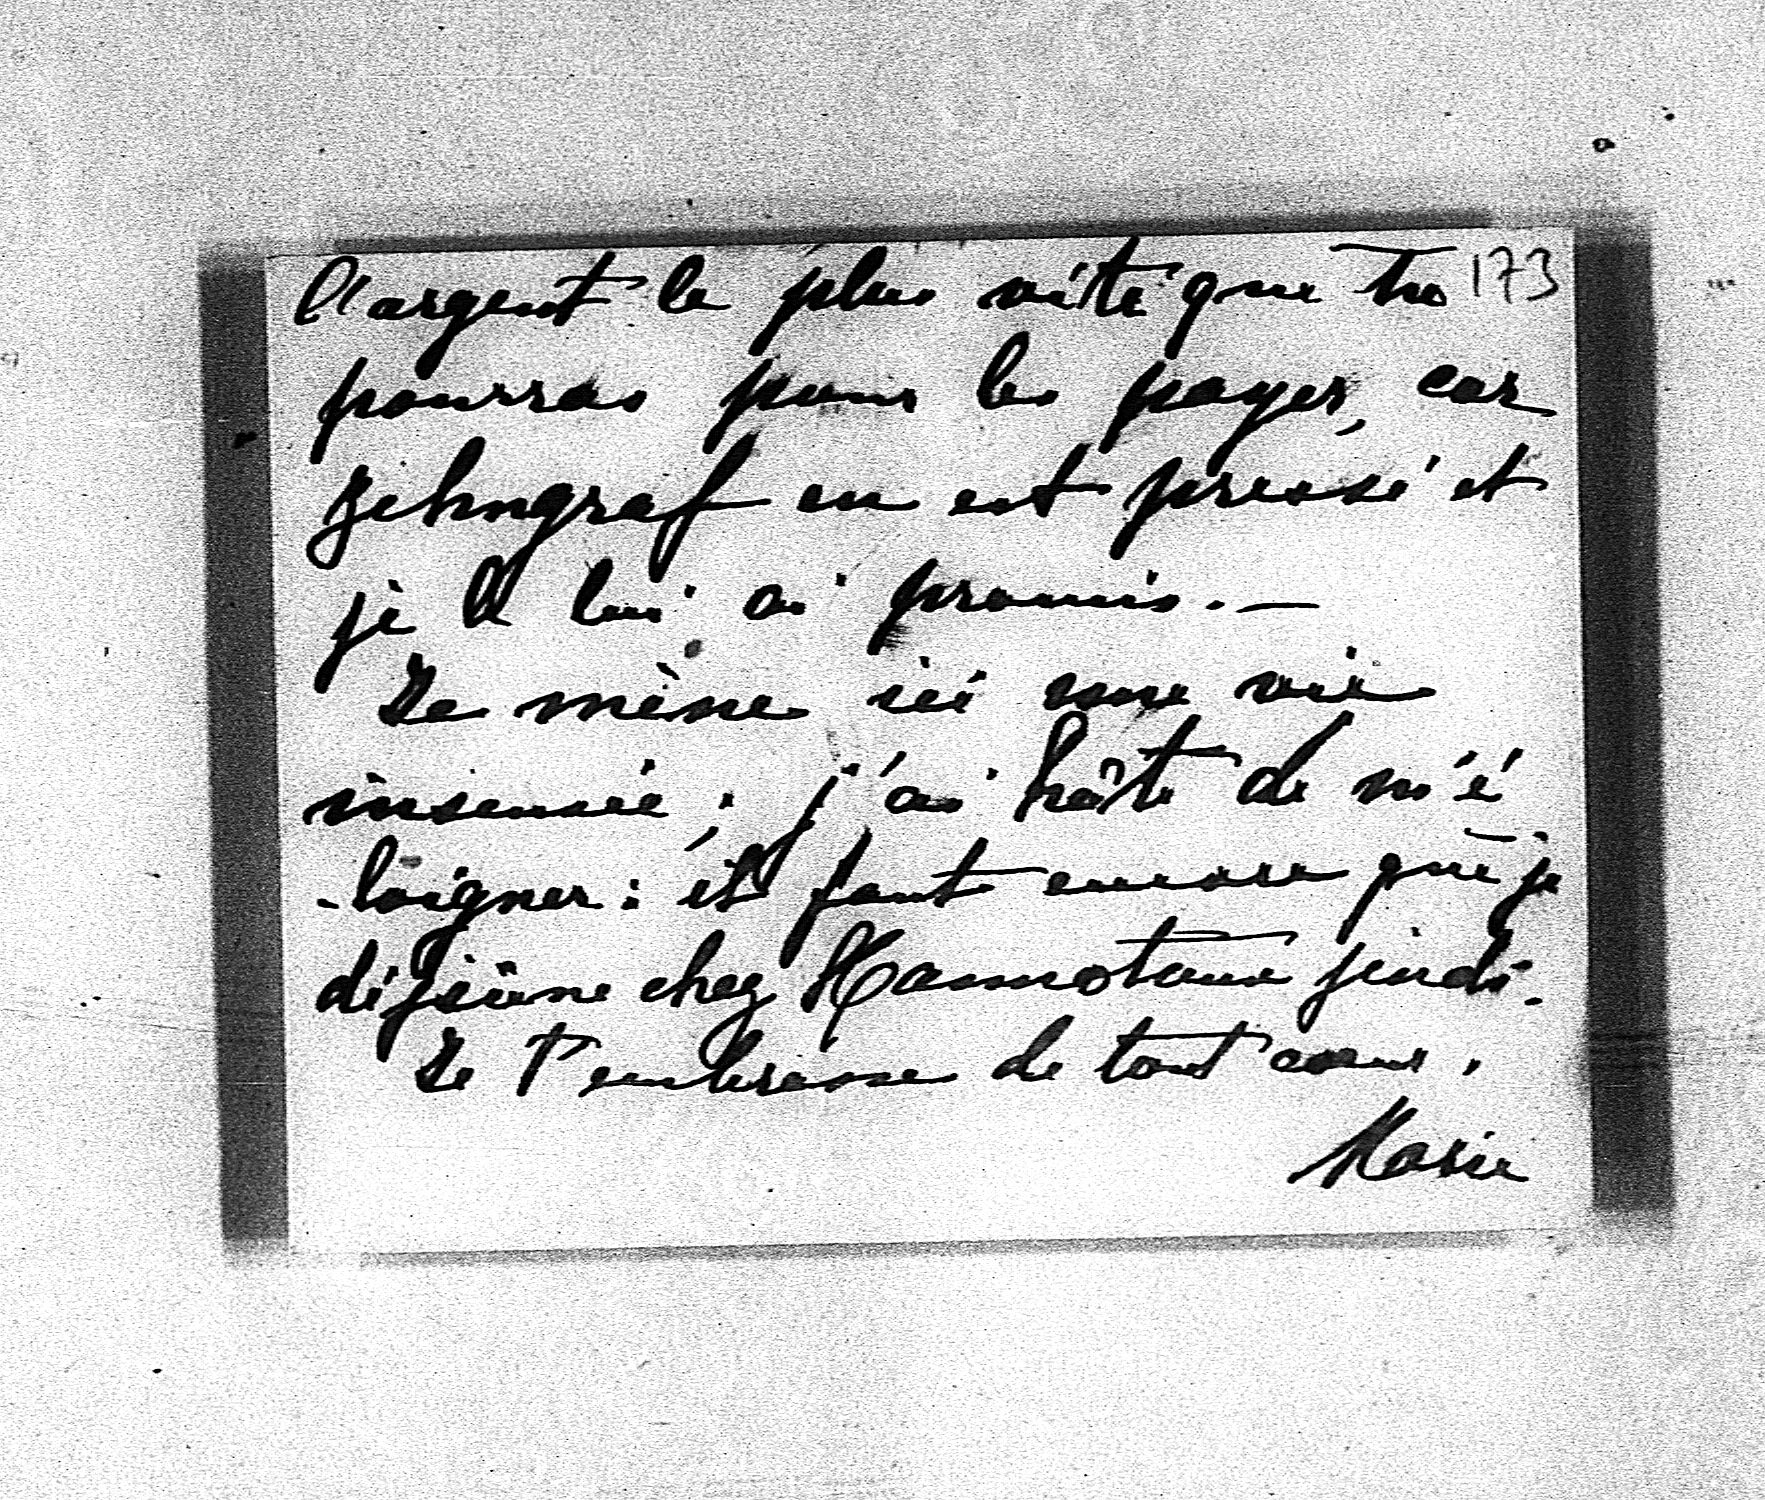 l'argent le plus vite que tu 173
pourras pour les payer, car
Zehngraf en est pressé et
je le lui ai promis. —
Je mène ici une vie
insensée ; j'ai hâte de m'é
-loigner : il faut encore que je
déjeune chez Hannotaux jeudi.
Je t'embrasse de tout cœur.
Marie